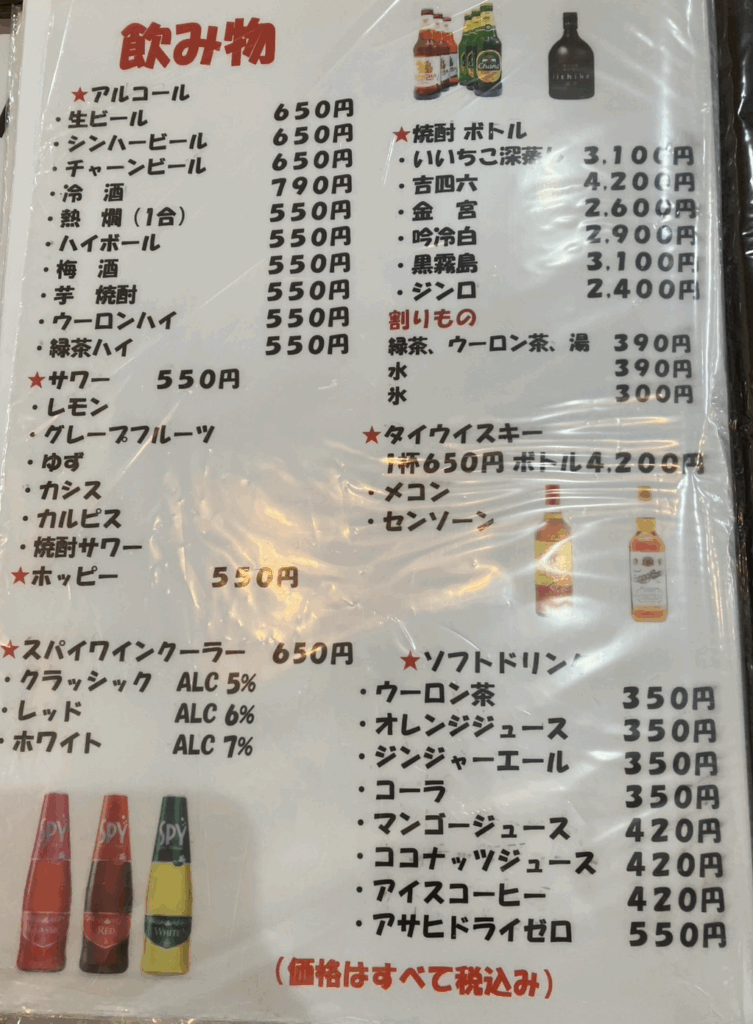 飲み物
★アルコール
・生ビール 650円
・シンハービール 650円
・チャーンビール 650円
・冷 酒 790円
・熱 燗(1合) 550円
・ハイボール 550円
・梅 酒 550円
・芋 焼酎 550円
・ウーロンハイ 550円
・緑茶ハイ 550円
★サワー 550円
・レモン
・グレープフルーツ
・ゆず
・カシス
・カルピス
・焼酎サワー
★ホッピー 550円
★スパイワインクーラー 650円
・クラッシック ALC 5%
・レッド ALC 6%
・ホワイト ALC 7%
SPY
SPY
SPY
CLASSIC
RED
WHITE
Chang
iichiko
★焼酎 ボトル
・いいちこ深蒸し 3,100円
・吉四六 4,200円
・金 宮 2,600円
・吟冷白 2,900円
・黒霧島 3,100円
・ジンロ 2,400円
割りもの
緑茶、ウーロン茶、湯 390円
水 390円
氷 300円
★タイウイスキー
1杯650円 ボトル4,200円
・メコン
・センソーン
★ソフトドリンク
・ウーロン茶 350円
・オレンジジュース 350円
・ジンジャーエール 350円
・コーラ 350円
・マンゴージュース 420円
・ココナッツジュース 420円
・アイスコーヒー 420円
・アサヒドライゼロ 550円
(価格はすべて税込み)